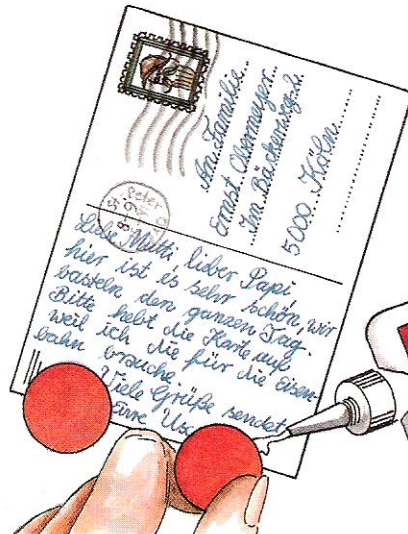 An Familie
Ernst Obermeyer
Im Bäckerweg 2
5000 Köln
St. Peter
Liebe Mutti lieber Papi,
hier ist es sehr schön, wir
basteln den ganzen Tag.
Bitte hebt die Karte auf
weil ich die für die Eisen-
bahn brauche.
Viele Grüße sendet